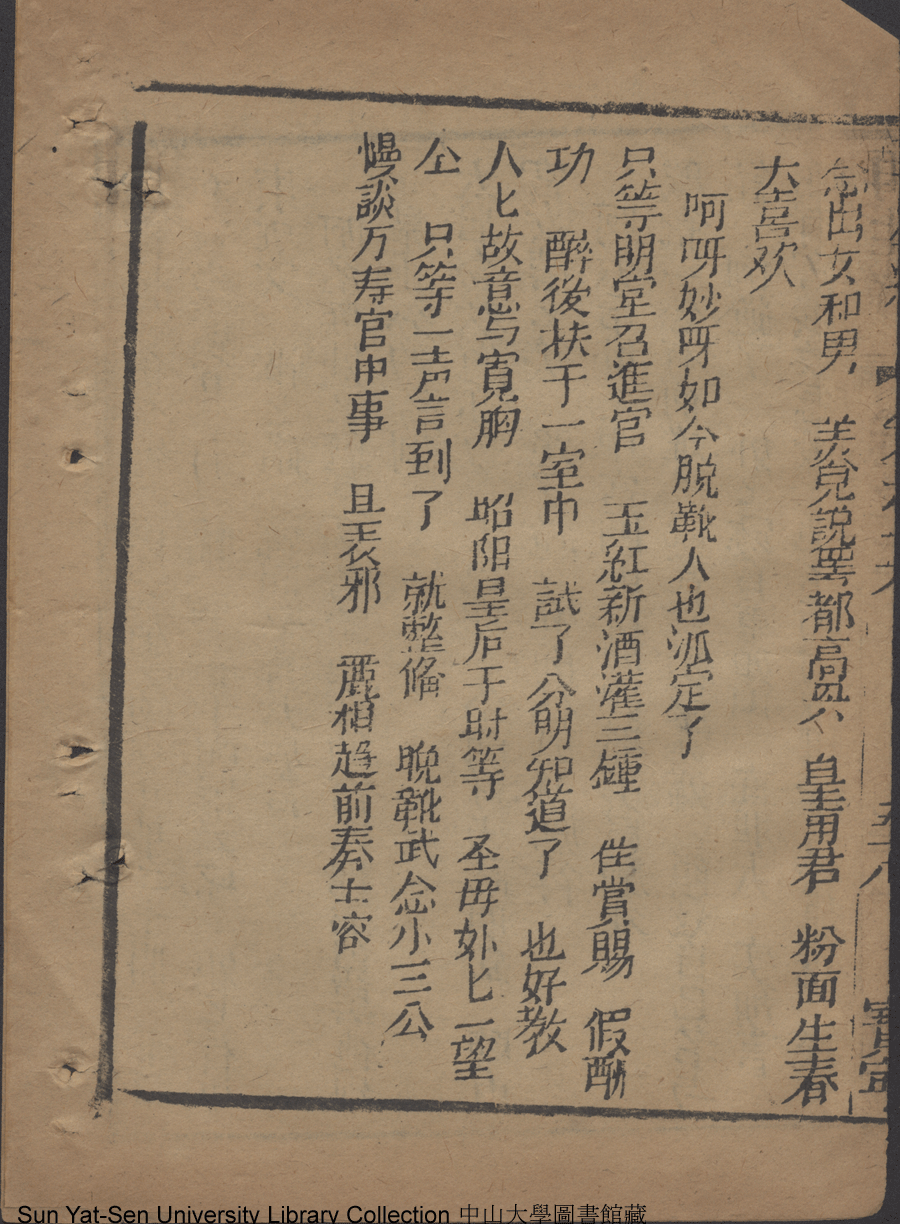 念出女和男 美皃説畢都高思 皇甫君 粉面生春
大喜欢
呵呀妙呀如今脱靴人也派定了
只等明堂召進官 玉紅新酒灌三鍾 佯賞賜 假酧
功 醉後扶于一室中 試了分明知道了 也好教
人匕故意与寬胸 昭阳皇后于时等 圣毋妙匕一望
公 只等一声言到了 就整脩 晚靴武念小三公
慢談万寿官中事 且表邪 麗相趋前奏士容
Sun Yat-Sen University Library Collection 中山大學圖書館藏